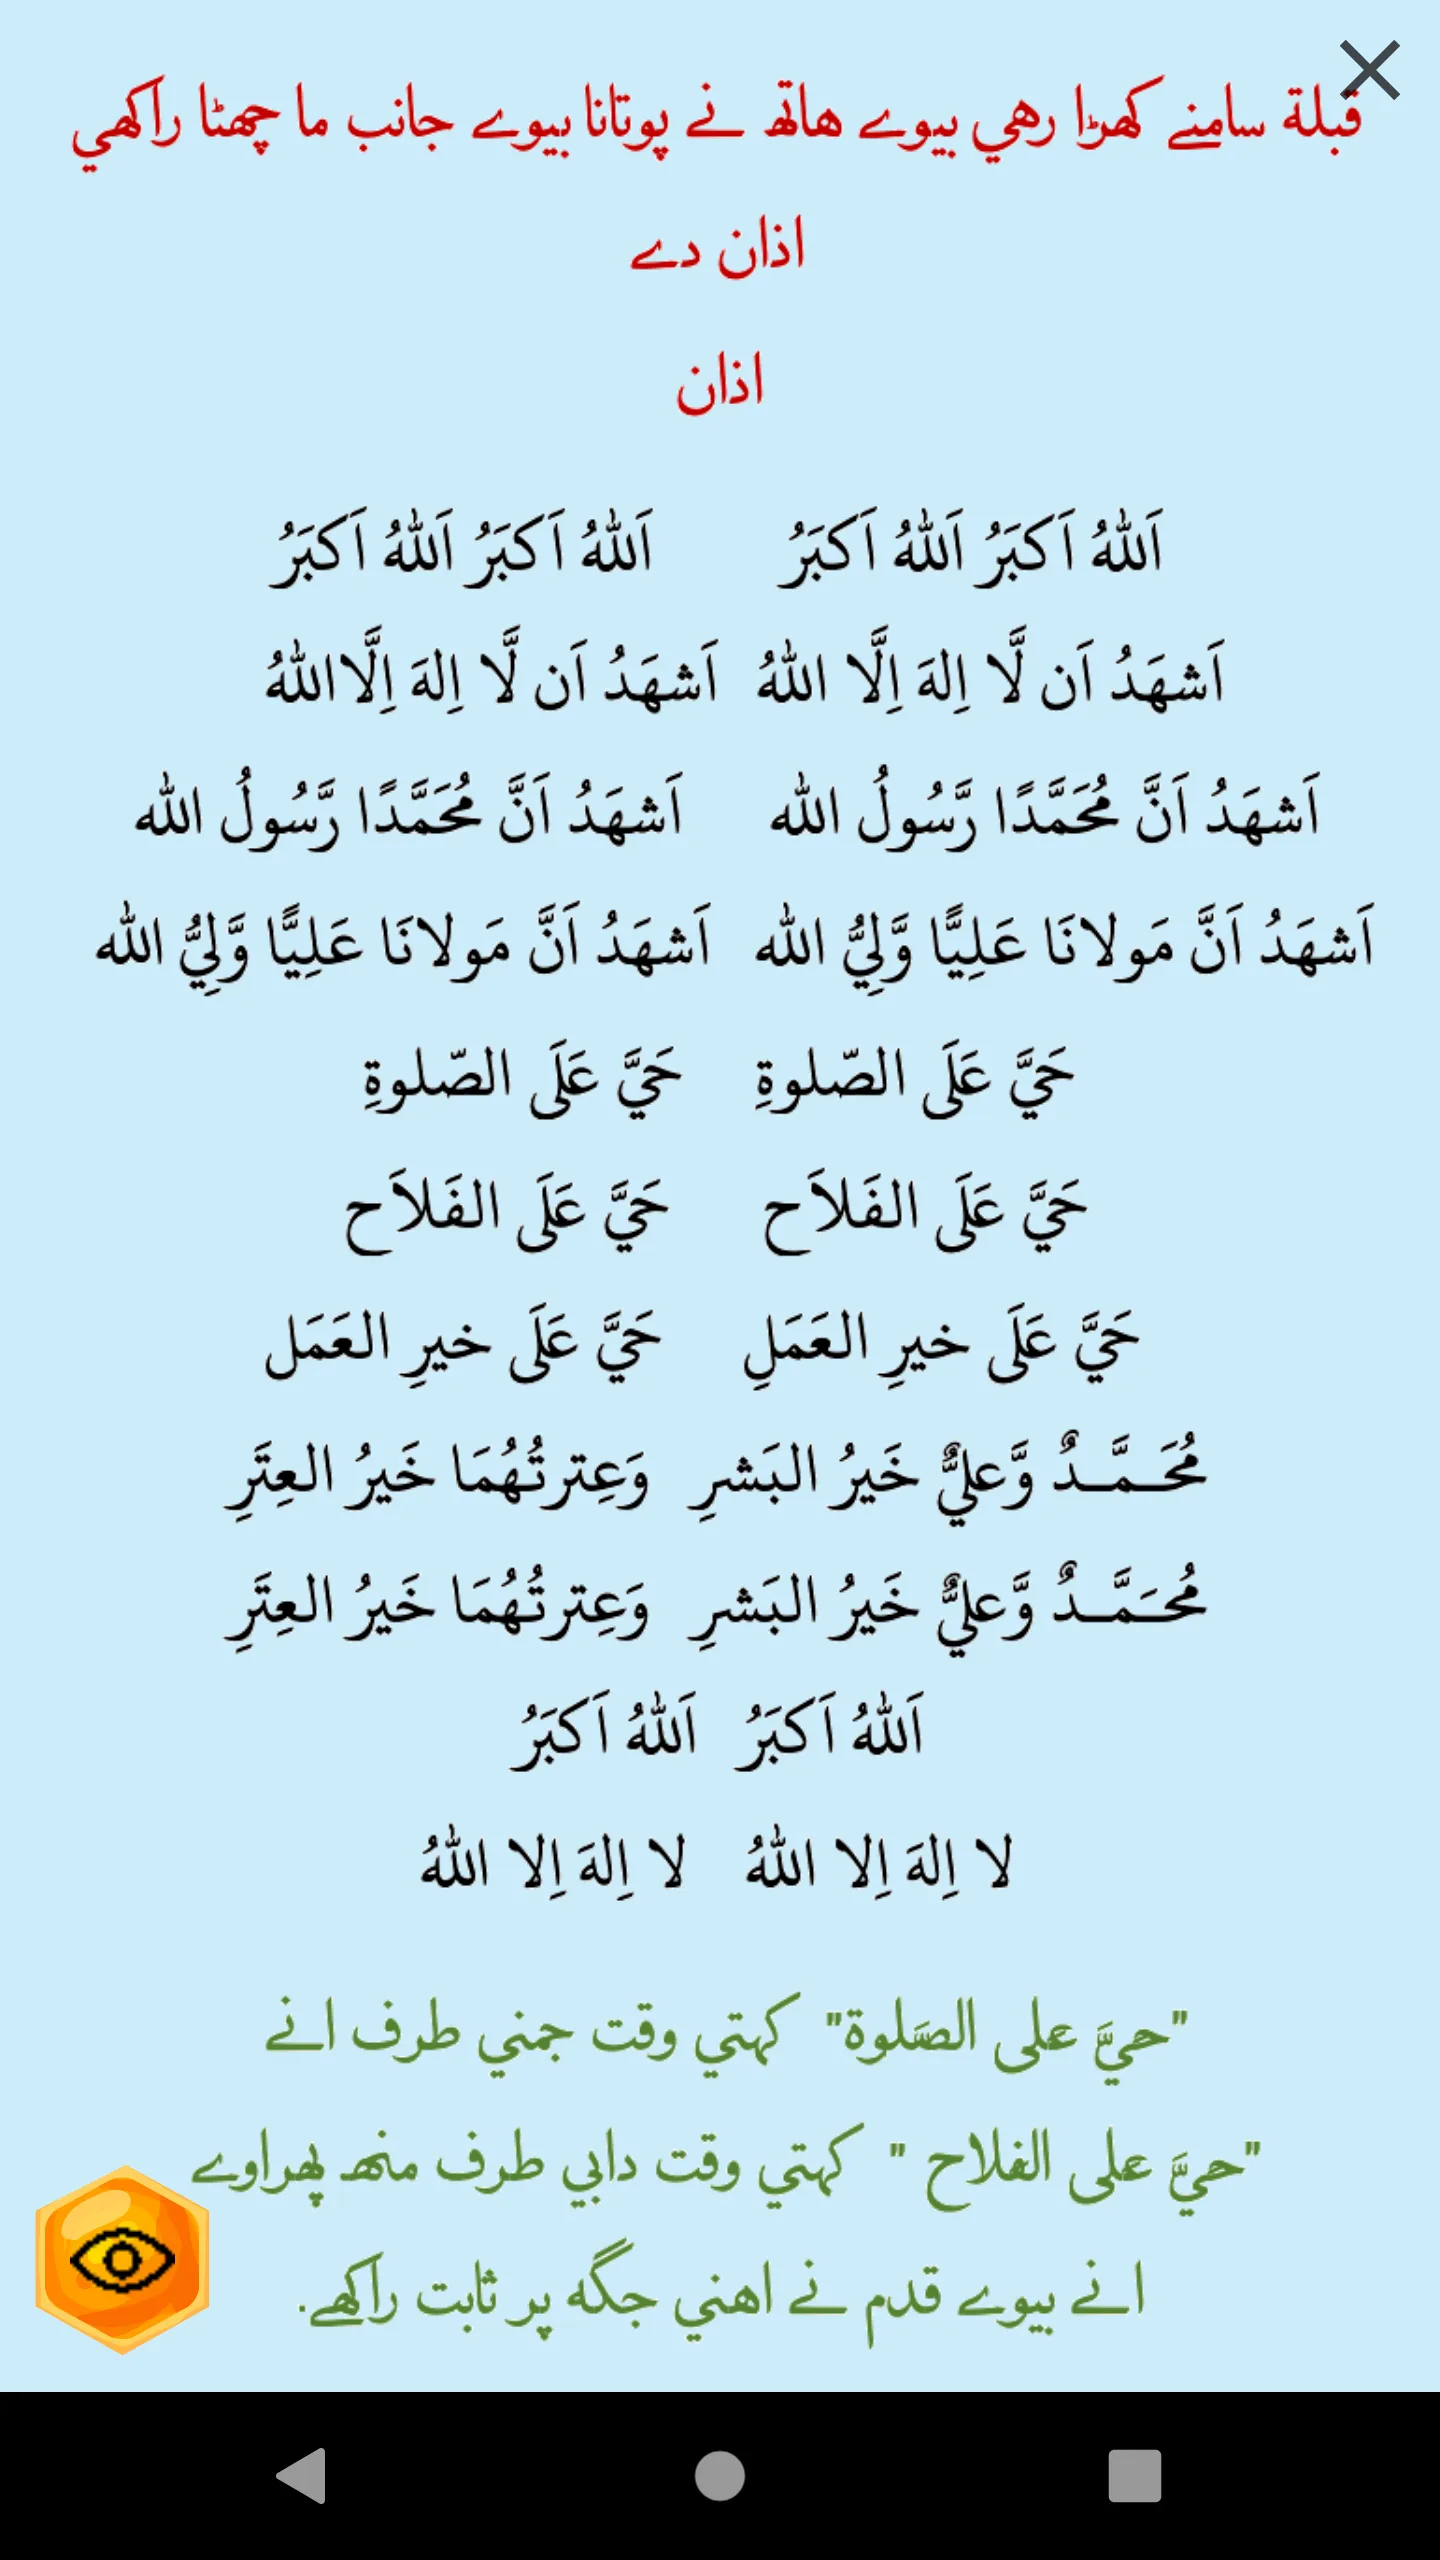 قبلة سامنے كهڑا رهي بيوے هاتھ نے پوتانا بيوے جانب ما چهٹا راكهي
اذان دے
اذان
اَللهُ اَكبَرُ اَللهُ اَكبَرُ اَللهُ اَكبَرُ اَللهُ اَكبَرُ
اَشهَدُ اَن لَّا اِلهَ اِلَّا اللهُ اَشهَدُ اَن لَّا اِلهَ اِلَّااللهُ
اَشهَدُ اَنَّ مُحَمَّدًا رَّسُولُ الله اَشهَدُ اَنَّ مُحَمَّدًا رَّسُولُ الله
اَشهَدُ اَنَّ مَولانَا عَلِيًّا وَّلِيُّ الله اَشهَدُ اَنَّ مَولانَا عَلِيًّا وَّلِيُّ الله
حَيَّ عَلَى الصّلوةِ حَيَّ عَلَى الصّلوةِ
حَيَّ عَلَى الفَلاَح حَيَّ عَلَى الفَلاَح
حَيَّ عَلَى خيرِ العَمَلِ حَيَّ عَلَى خيرِ العَمَل
مُحَـمَّـدٌ وَّعليٌّ خَيرُ البَشرِ وَعِترتُهُمَا خَيرُ العِتَرِ
مُحَـمَّـدٌ وَّعليٌّ خَيرُ البَشرِ وَعِترتُهُمَا خَيرُ العِتَرِ
اَللهُ اَكبَرُ اَللهُ اَكبَرُ
لا اِلهَ اِلا اللهُ لا اِلهَ اِلا اللهُ
"حيَّ على الصَلوة" كهتي وقت جمني طرف انے
"حيَّ على الفلاح " كهتي وقت دابي طرف منھ پهراوے
انے بيوے قدم نے اهني جگه پر ثابت راكهے.